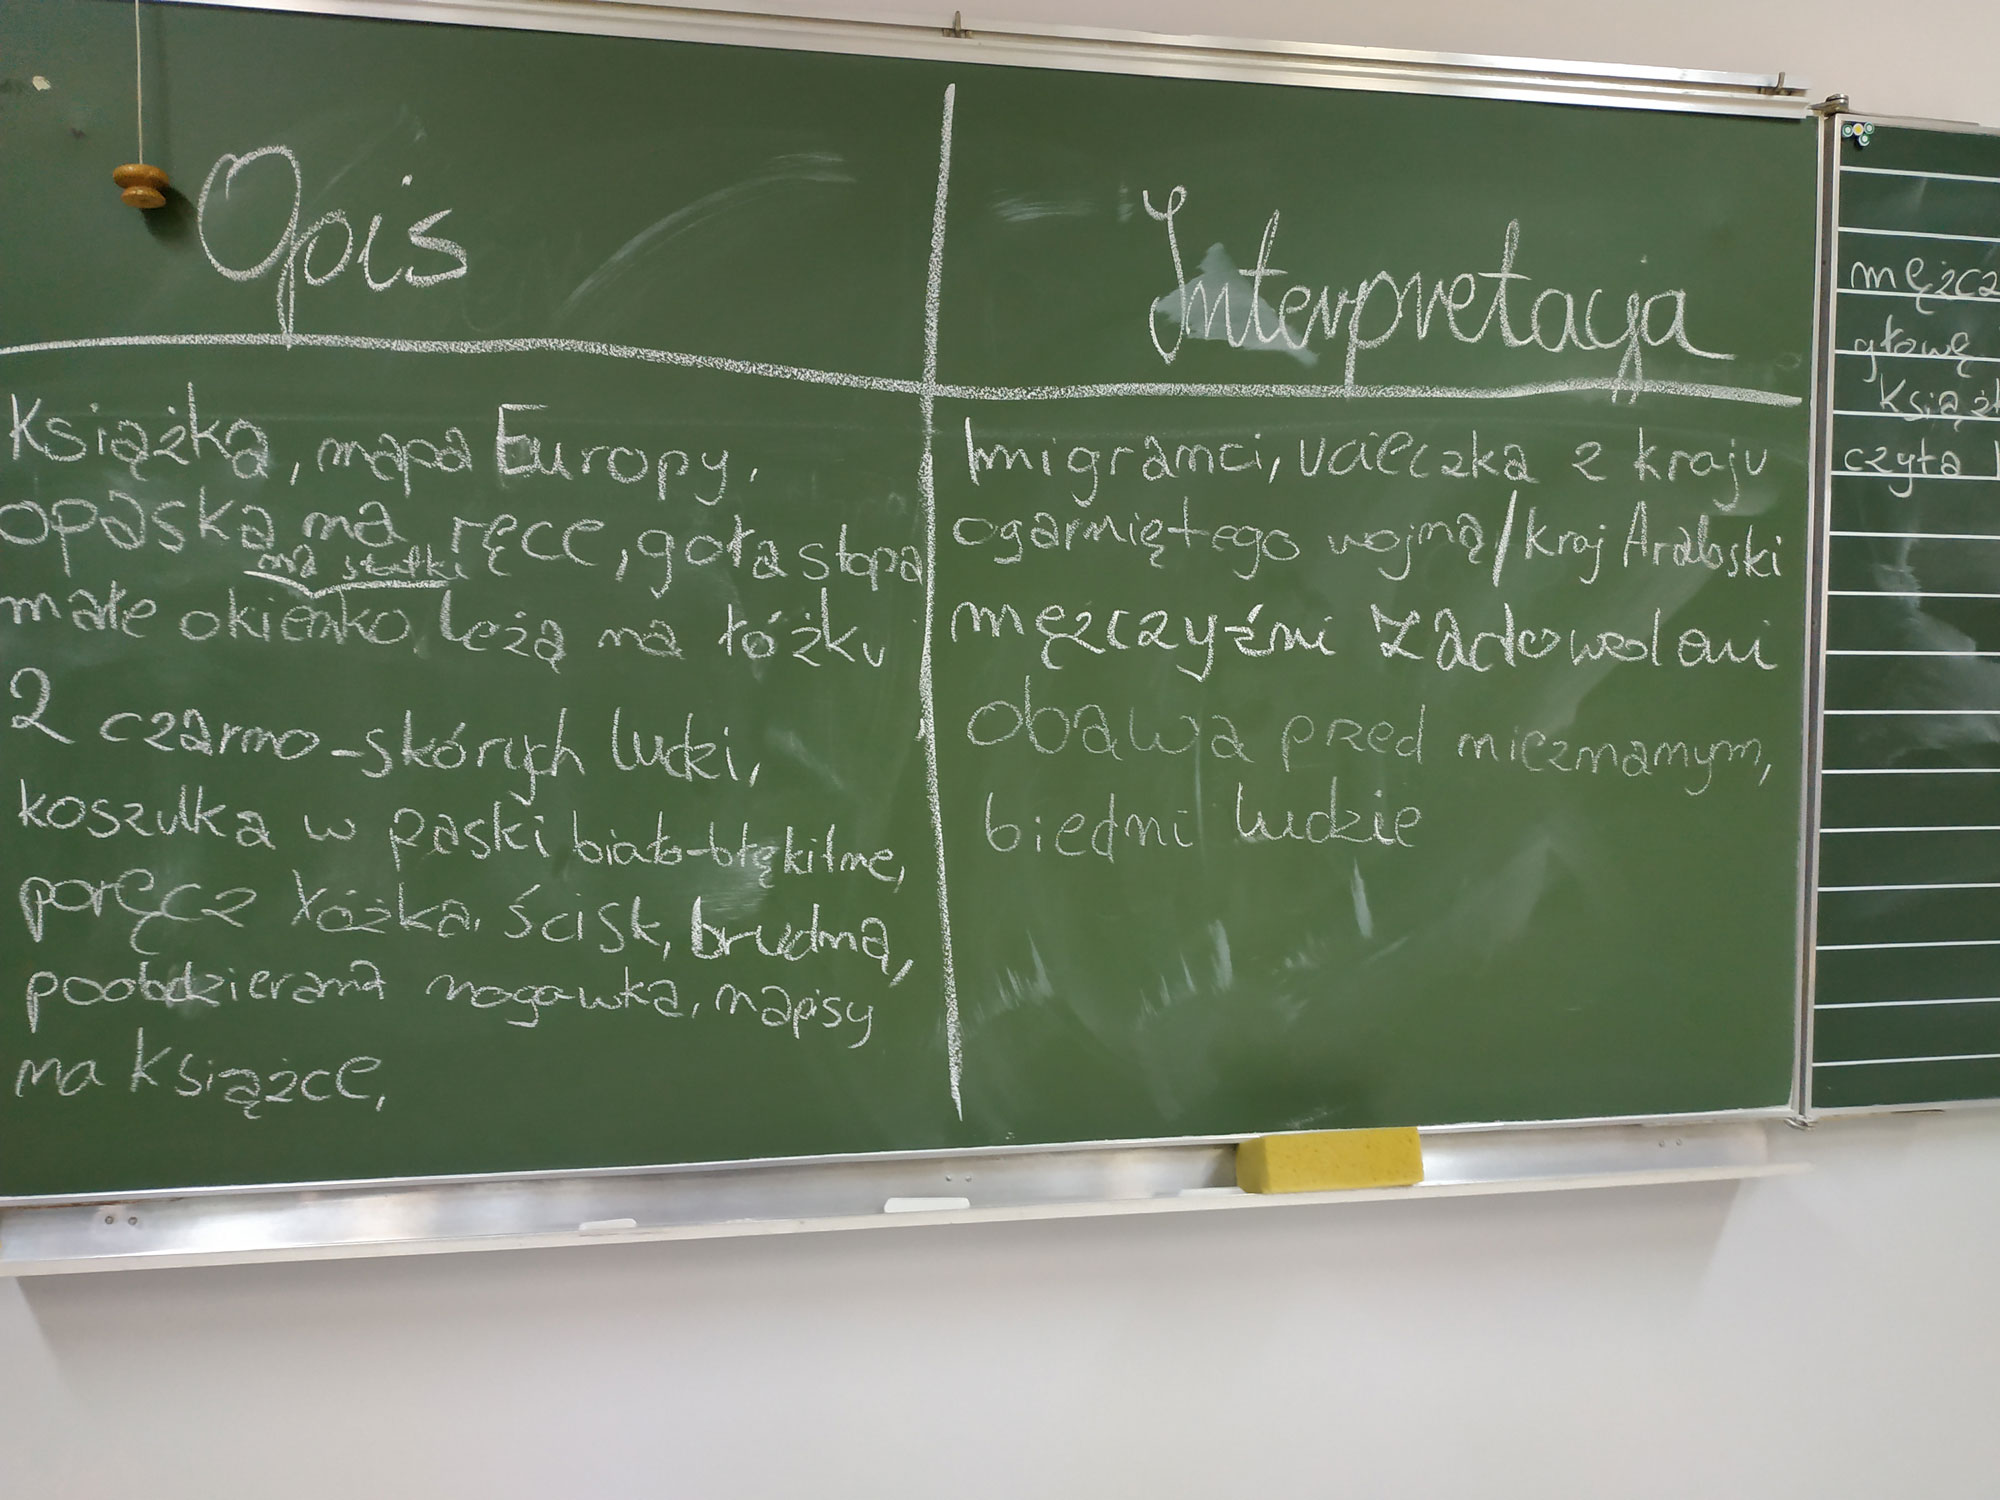 Opis
Książka, mapa Europy,
opaska na ręce, goła stopa
na statki
małe okienko, leżą na łóżku
2 czarno-skórych ludzi,
koszulka w paski biało-błękitne,
poręcz łóżka, ścisk, brudna,
poobdzierana nogawka, napisy
na książce,
Interpretacja
Imigranci, ucieczka z kraju
ogarniętego wojną/kraj Arabski
mężczyźni zadowoleni
obawa przed nieznanym,
biedni ludzie
mężcz
głowę
książk
czyta